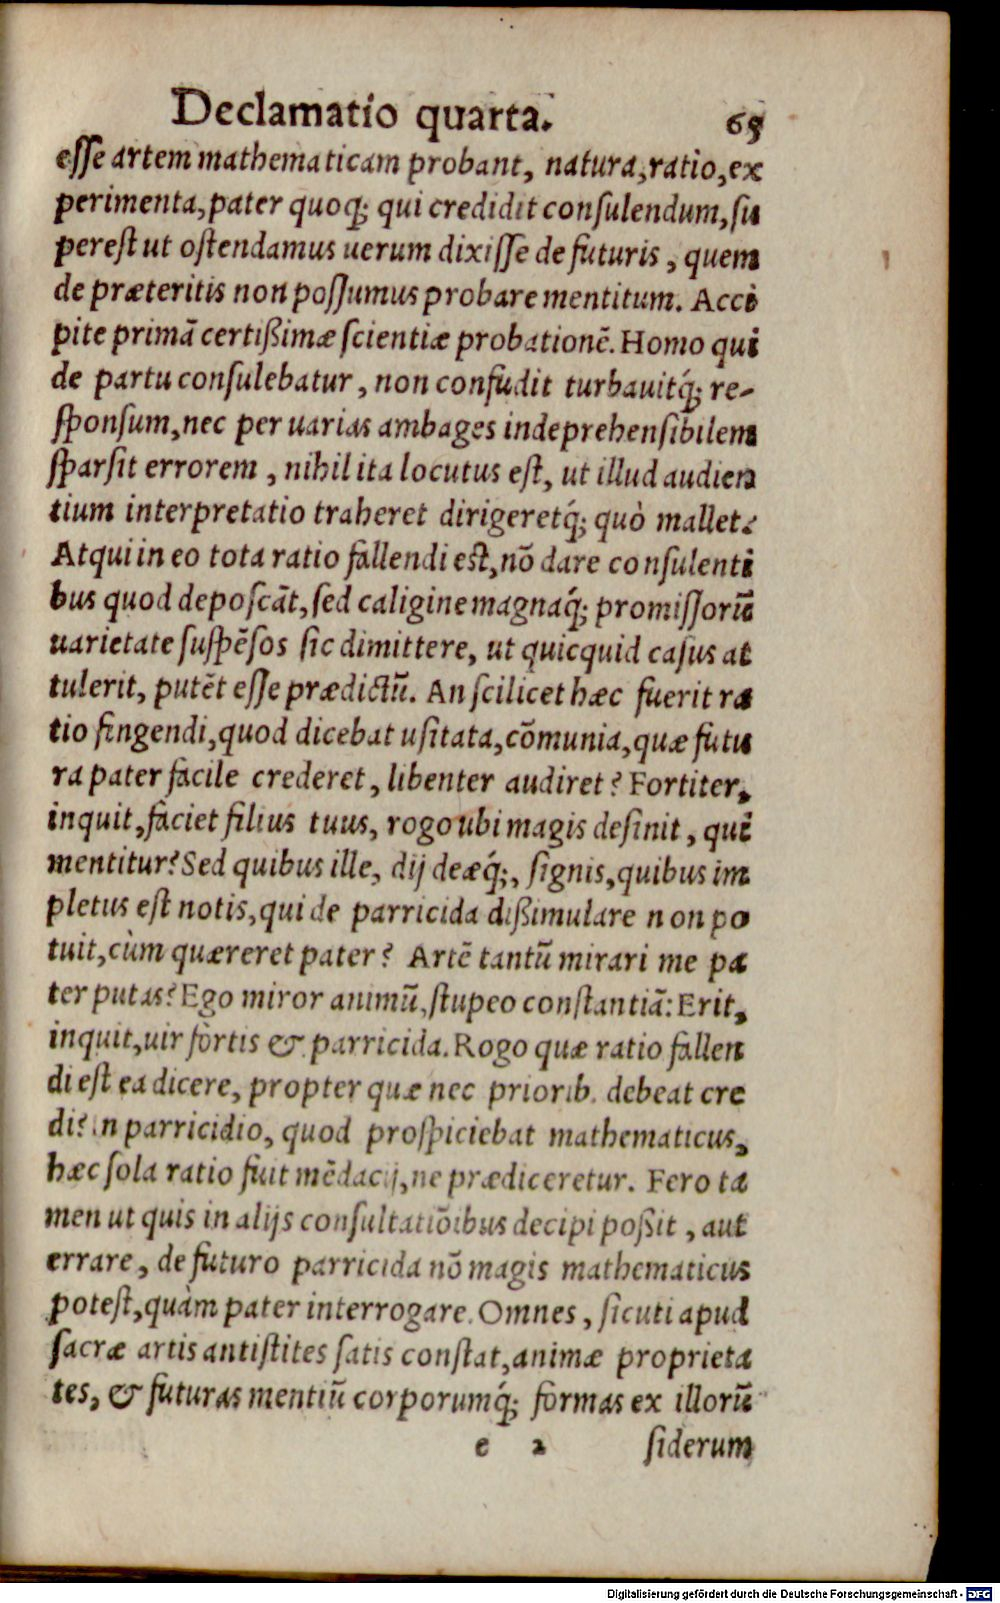 Declamatio quarta. 65
esse artem mathematicam probant, natura, ratio, ex
perimenta, pater quoq́; qui credidit consulendum, su
perest ut ostendamus uerum dixisse de futuris, quem
de præteritis non possumus probare mentitum. Acci
pite primã certißimæ scientiæ probationẽ. Homo qui
de partu consulebatur, non confudit turbauitq́; re-
sponsum, nec per uarias ambages indeprehensibilem
sparsit errorem, nihil ita locutus est, ut illud audien
tium interpretatio traheret dirigeretq́; quò mallet?
Atqui in eo tota ratio fallendi est, nõ dare consulenti
bus quod deposcãt, sed caligine magnaq́; promissorũ
uarietate suspẽsos sic dimittere, ut quicquid casus at
tulerit, putẽt esse prædictũ. An scilicet hæc fuerit ra
tio fingendi, quod dicebat usitata, cõmunia, quæ futu
ra pater facile crederet, libenter audiret? Fortiter,
inquit, faciet filius tuus, rogo ubi magis desinit, qui
mentitur? Sed quibus ille, dij deæq́;, signis, quibus im
pletus est notis, qui de parricida dißimulare non po
tuit, cùm quæreret pater? Artẽ tantũ mirari me pa
ter putas? Ego miror animũ, stupeo constantiã: Erit,
inquit, uir fortis & parricida. Rogo quæ ratio fallen
di est ea dicere, propter quæ nec priorib. debeat cre
di? in parricidio, quod prospiciebat mathematicus,
hæc sola ratio fuit mẽdacij, ne prædiceretur. Fero ta
men ut quis in alijs consultatiõibus decipi poßit, aut
errare, de futuro parricida nõ magis mathematicus
potest, quàm pater interrogare. Omnes, sicuti apud
sacræ artis antistites satis constat, animæ proprieta
tes, & futuras mentiũ corporumq́; formas ex illorũ
e 2 siderum
Digitalisierung gefördert durch die Deutsche Forschungsgemeinschaft - DFG